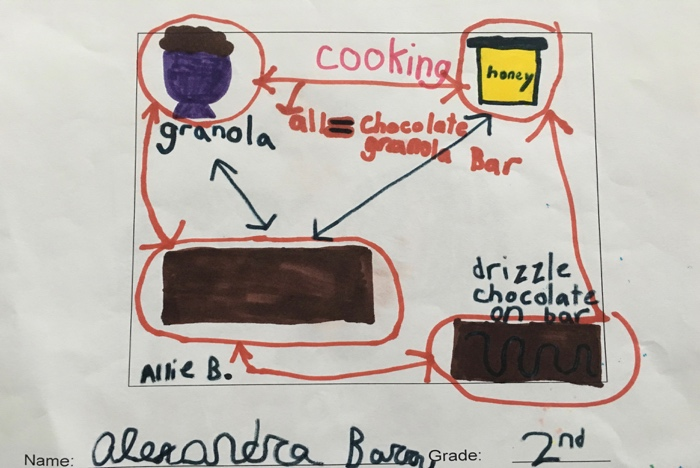 cooking
honey
granola
all = chocolate
granola Bar
drizzle
chocolate
on bar
Allie B.
Name: alexandra Grade: 2nd